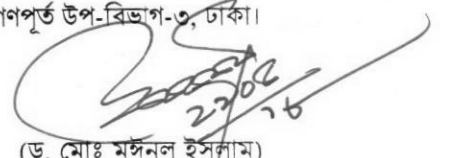 গণপূর্ত উপ-বিভাগ-৩, ঢাকা।
(ড. মোঃ মঈনুল ইসলাম)